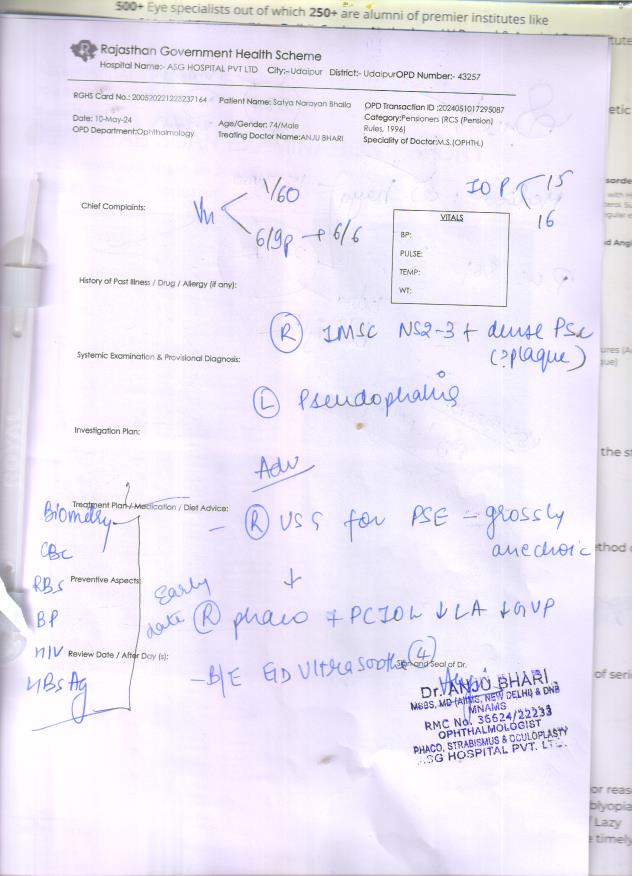 500+ Eye specialists out of which 250+ are alumni of premier institutes like
Rajasthan Government Health Scheme
Hospital Name:- ASG HOSPITAL PVT LTD City:-Udaipur District:- Udaipur OPD Number:- 43257
RGHS Card No.: 200520221223237164 Patient Name: Satya Narayan Bhalla OPD Transaction ID :2024051017295087
Category:Pensioners (RCS (Pension)
Rules, 1996)
Date: 10-May-24 Age/Gender: 74/Male
OPD Department:Ophthalmology Treating Doctor Name:ANJU BHARI Speciality of Doctor:M.S.(OPHTH.)
Chief Complaints:
Vn 1/60
6/9p → 6/6
IOP 15
16
VITALS
BP:
PULSE:
TEMP:
WT:
History of Past Illness / Drug / Allergy (if any):
R IMSC NS2-3 + dense PSC
(?plaque)
Systemic Examination & Provisional Diagnosis:
L Pseudophakia
Investigation Plan:
Adv
Treatment Plan / Medication / Diet Advice:
Biometry
CBC
RBS
BP
HBsAg
- R USG for PSE - grossly
anechoic
Preventive Aspects:
Early
date R phaco + PCIOL ↓ LA ↓ GVP
Review Date / After Day (s):
- B/E ED Ultrasoothe 4
Sign and Seal of Dr.
Dr. ANJU BHARI
MBBS, MD (AIIMS, NEW DELHI) & DNB
MNAMS
RMC No. 36624/22233
OPHTHALMOLOGIST
PHACO, STRABISMUS & OCULOPLASTY
ASG HOSPITAL PVT. LTD.
the s
of seri
or reas
blyopia
Lazy
timely